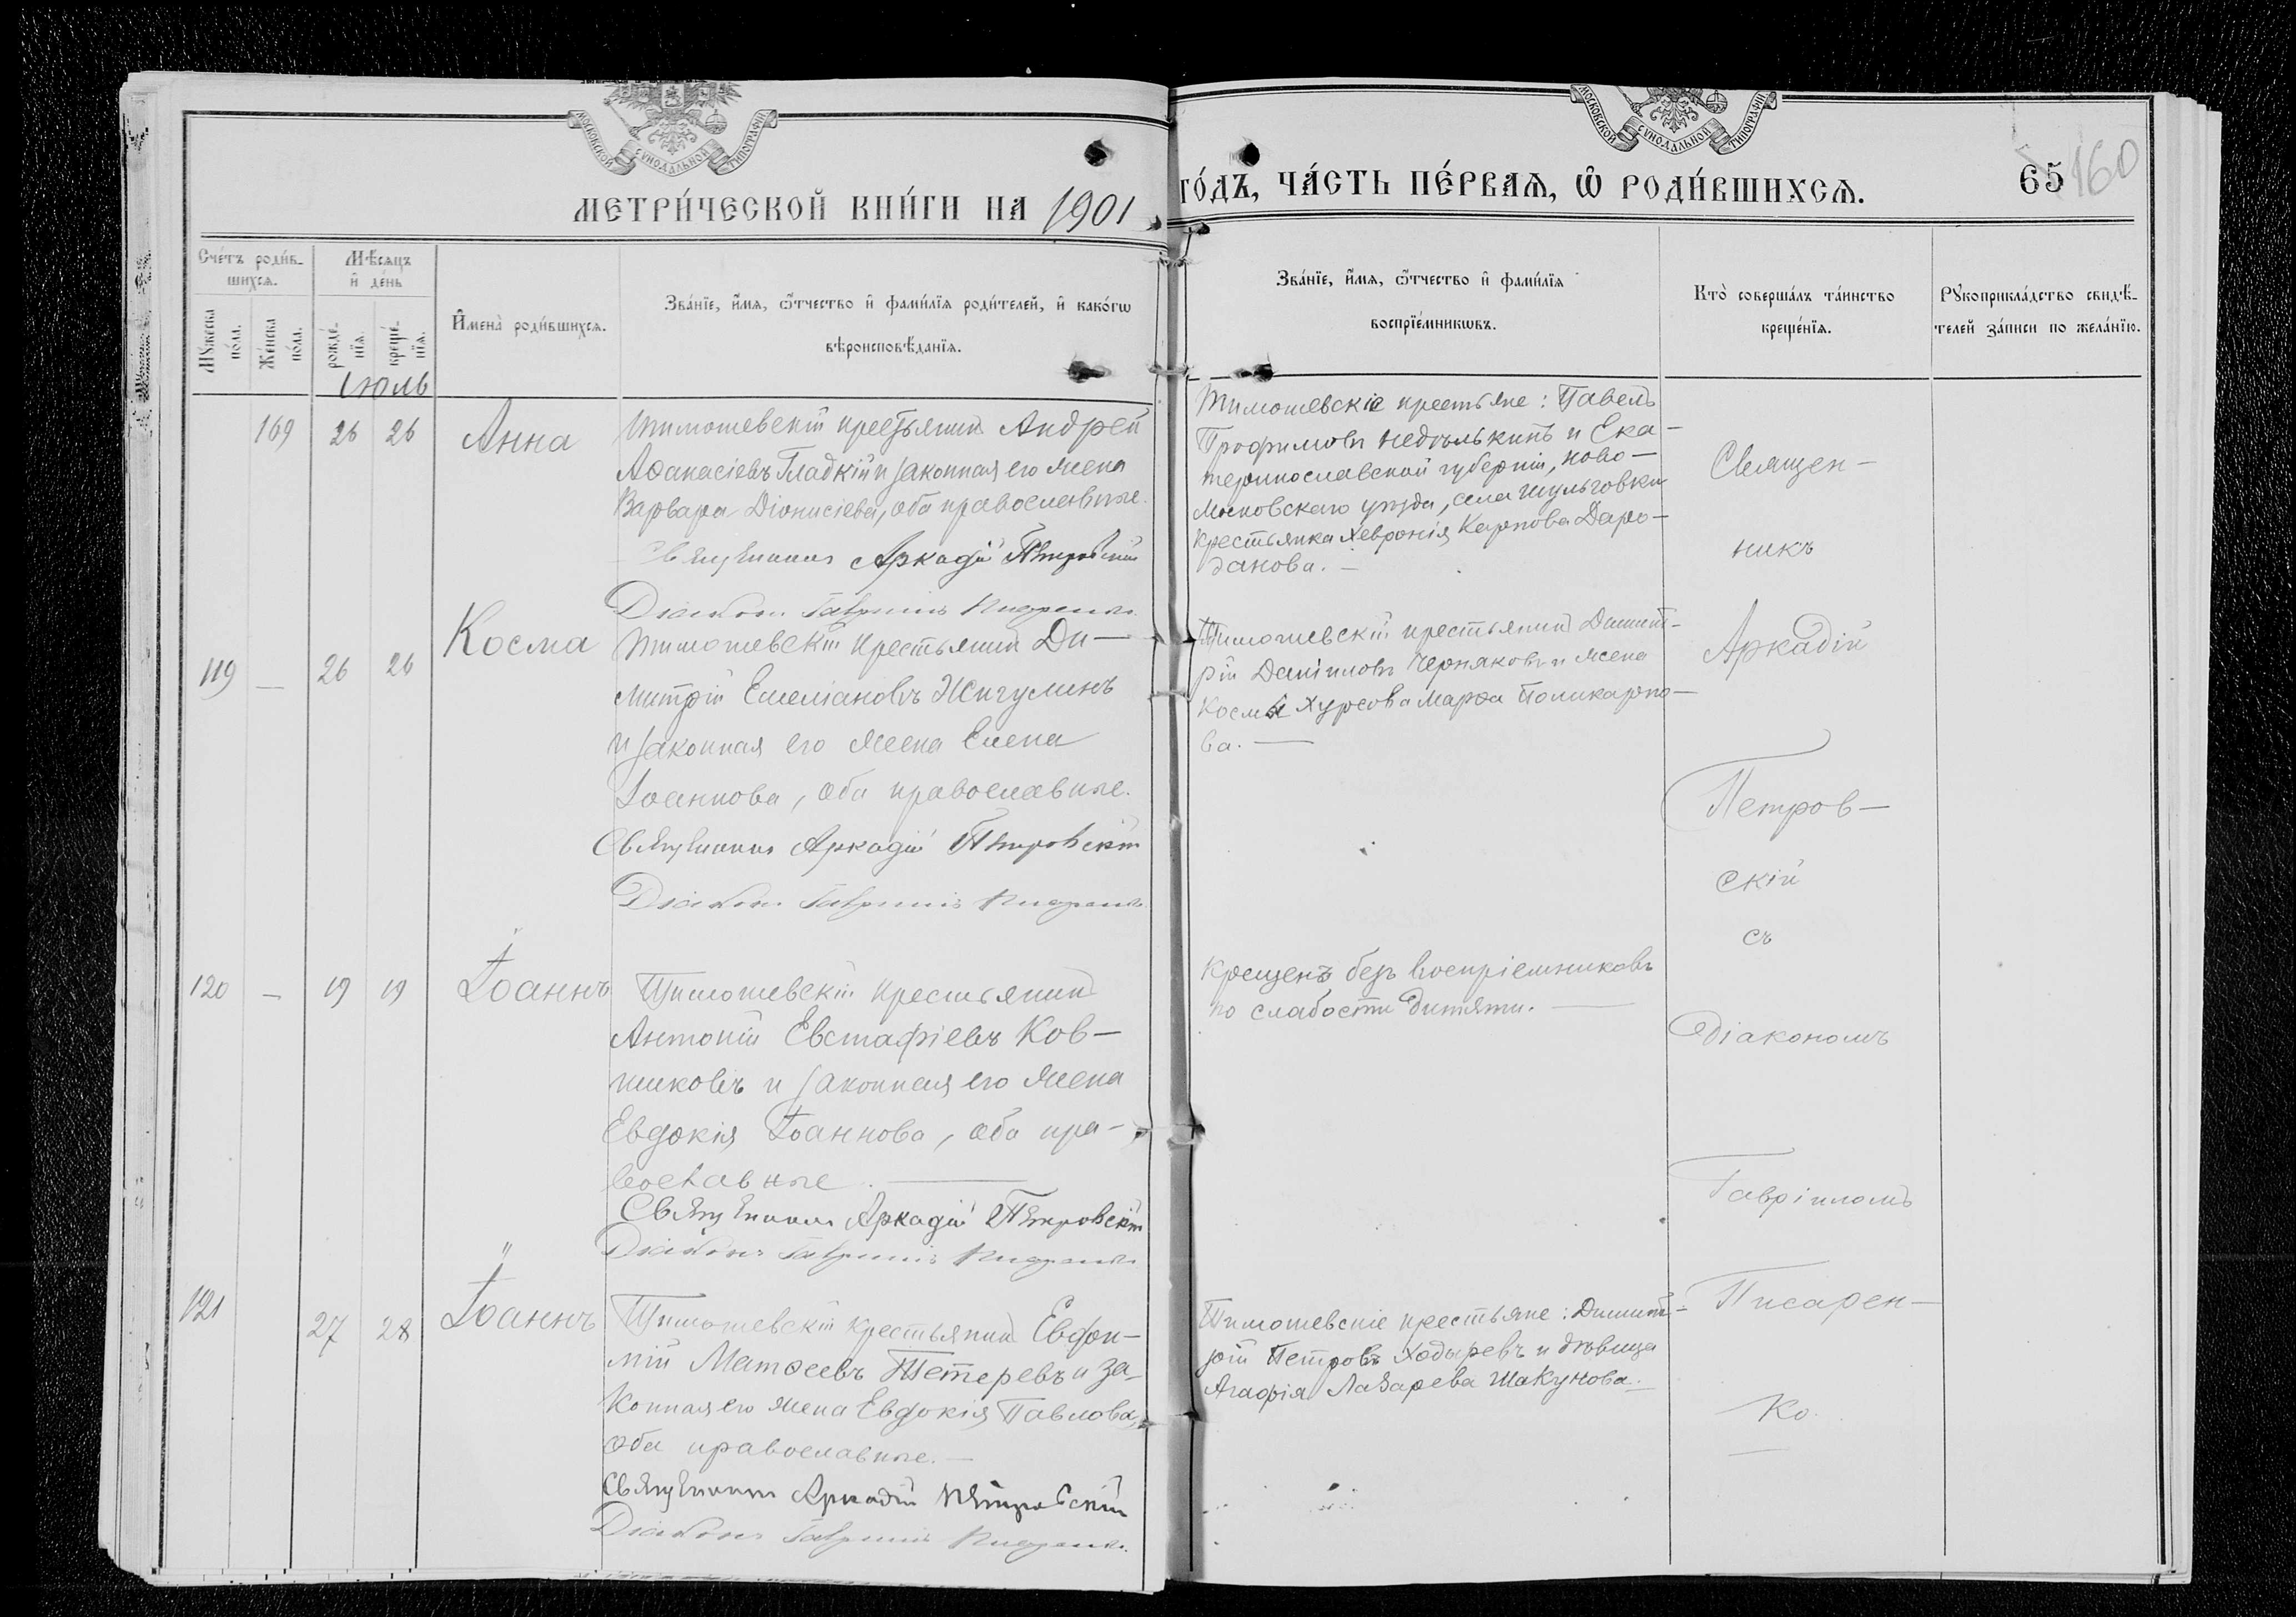 МОСКОВСКОЙ СѴНОДАЛЬНОЙ ТИПОГРАФІИ
МЕТРИ́ЧЕСКОЙ КНИ́ГИ НА 1901
Сче́тъ роди́в-
шихсѧ.
Мꙋ́жеска
по́ла.
Же́нска
по́ла.
Мѣ́сѧцъ
и҆ де́нь
рожде́-
нїѧ.
креще́-
нїѧ.
И҆мена̀ роди́вшихсѧ.
Зва́нїе, и҆́мѧ, ѻ҆́тчество и҆ фами́лїѧ роди́телей, и҆ како́гѡ
вѣроисповѣ́данїѧ.
Іюль
169 26 26 Анна
Тимошевскій крестьянинъ Андрей
Аѳанасіевъ Гладкій и законная его жена
Варвара Діонисіева, оба православные.
Священникъ Аркадій Петровскій
Діаконъ Гавріилъ Писаренко
119 — 26 26 Косма
Тимошевскій крестьянинъ Ди-
митрій Емеліановъ Жигулинъ
и законная его жена Елена
Іоаннова, оба православные.
Священникъ Аркадій Петровскій
Діаконъ Гавріилъ Писаренко
120 — 19 19 Іоаннъ
Тимошевскій крестьянинъ
Антоній Евстафіевъ Ков-
шиковъ и законная его жена
Евдокія Іоаннова, оба пра-
вославные. —
Священникъ Аркадій Петровскій
Діаконъ Гавріилъ Писаренко
121 27 28 Іоаннъ
Тимошевскій крестьянинъ Евфи-
мій Матѳеевъ Тетеревъ и за-
конная его жена Евдокія Павлова,
оба православные. —
Священникъ Аркадій Петровскій
Діаконъ Гавріилъ Писаренко
МОСКОВСКОЙ СѴНОДАЛЬНОЙ ТИПОГРАФІИ
ГО́ДЪ, ЧА́СТЬ ПЕ́РВАѦ, Ѡ҆ РОДИ́ВШИХСѦ.
65 160
Зва́нїе, и҆́мѧ, ѻ҆́тчество и҆ фами́лїѧ
воспрїе́мникѡвъ.
Кто̀ соверша́лъ та́инство
креще́нїѧ.
Рꙋкоприкла́дство свидѣ́-
телей за́писи по жела́нїю.
Тимошевскіе крестьяне: Павелъ
Трофимовъ Недѣлькинъ и Ека-
теринославской губерніи, Ново-
московскаго уѣзда, села Шульговки
крестьянка Хевронія Карпова Даро-
данова. —
Тимошевскій крестьянинъ Димит-
рій Даніиловъ Черняковъ и жена
Космы Хурсова Марѳа Поликарпо-
ва. —
Крещенъ безъ воспріемниковъ
по слабости дитяти. —
Тимошевскіе крестьяне: Димит-
рій Петровъ Ходыревъ и дѣвица
Агафія Лазарева Шакунова. —
Священ-
никъ
Аркадій
Петров-
скій
съ
діакономъ
Гавріиломъ
Писарен-
ко.